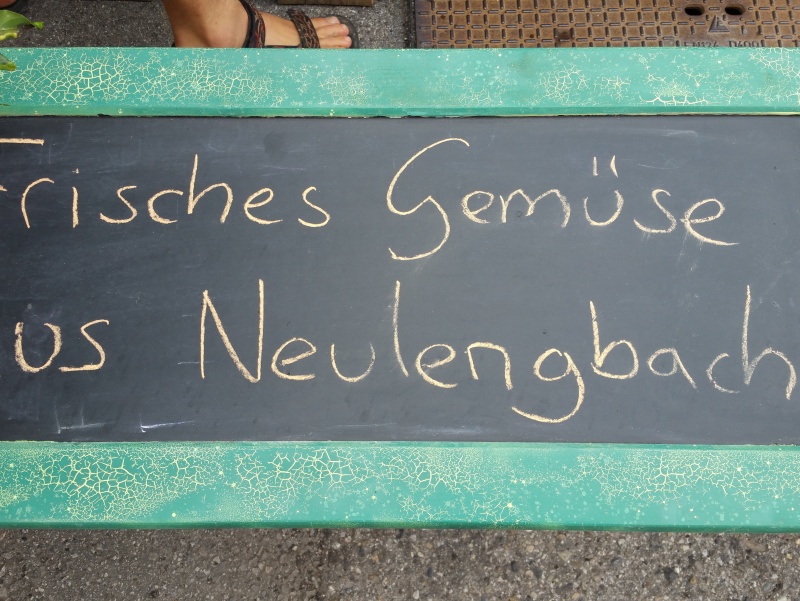 Frisches Gemüse
aus Neulengbach